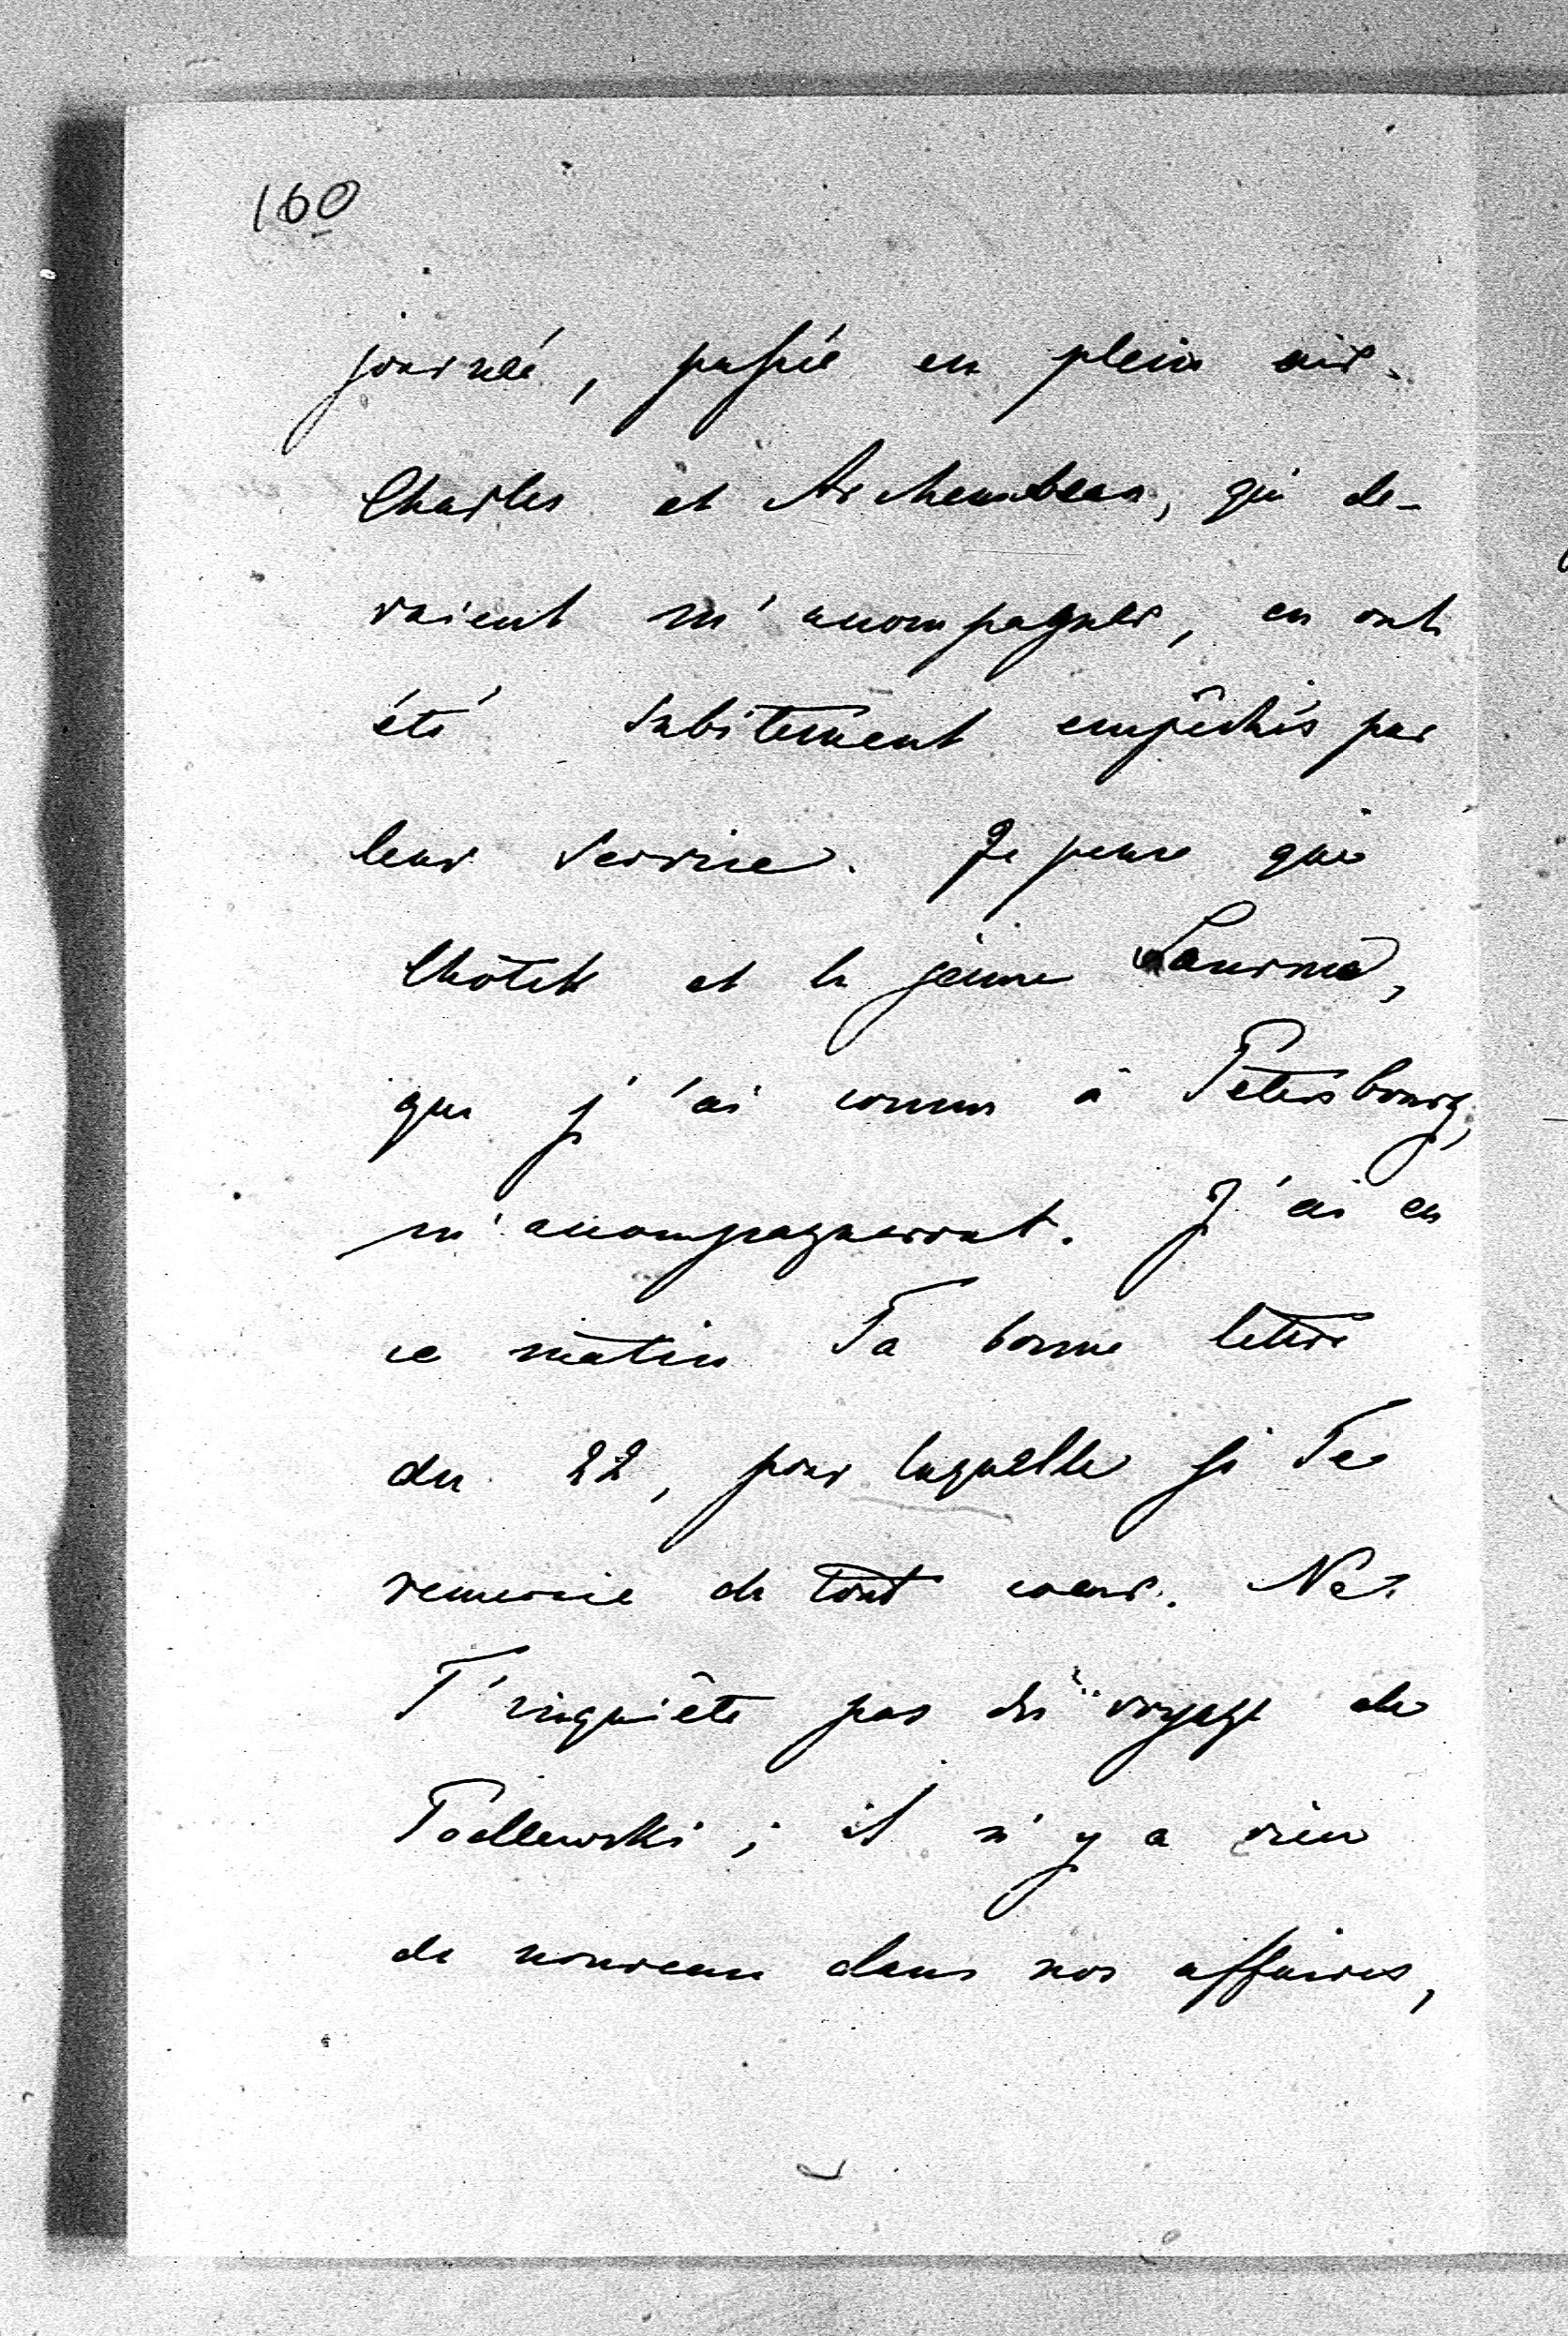 160
journée, passée en plein air.
Charles et Archambeau, qui de-
vaient m'accompagner, en ont
été subitement empêchés par
leur service. Je pense que
Chotek et le jeune Saurma,
que j'ai connu à Petersbourg,
m'accompagneront. J'ai eu
ce matin Ta bonne lettre
du 22, pour laquelle je Te
remercie de tout coeur. Ne
T'inquiète pas du voyage de
Podlewski; il n'y a rien
de nouveau dans nos affaires,